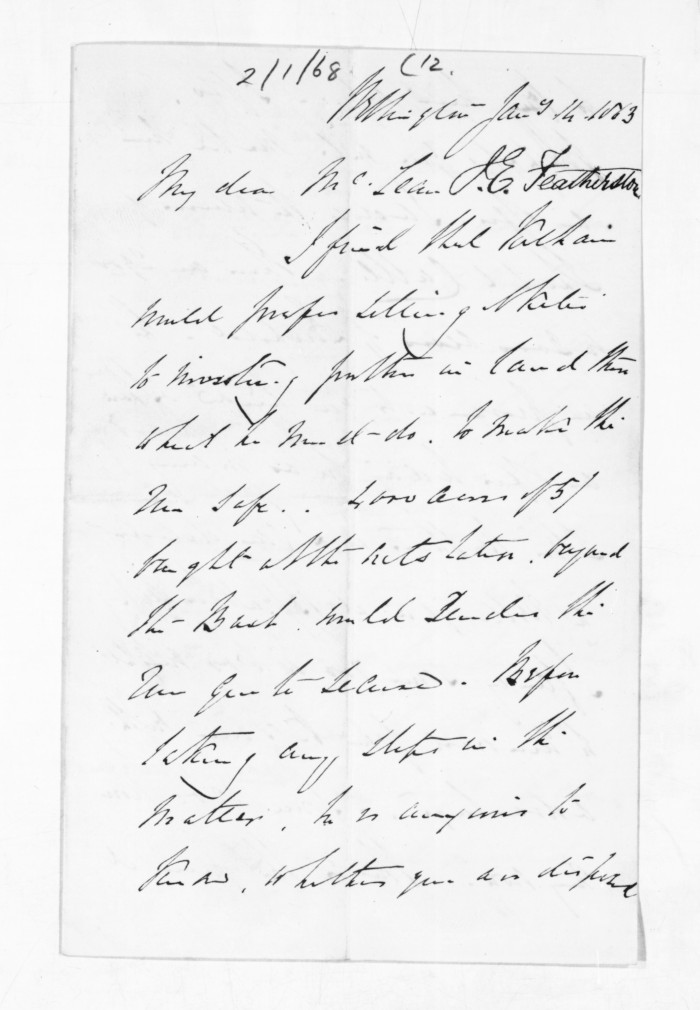 2/1/68. (12.
Wellington Jany 14. 1863
My dear McLean I.E. Featherston
I find that
would prefer selling
to investing further in land than
what he must do. To make the
run safe.. 4000 acres of 5/
bought at the out station. beyond
the Bush would render the
run quite secure. Before
taking any steps in the
matter, he is anxious to
know, whether you are disposed